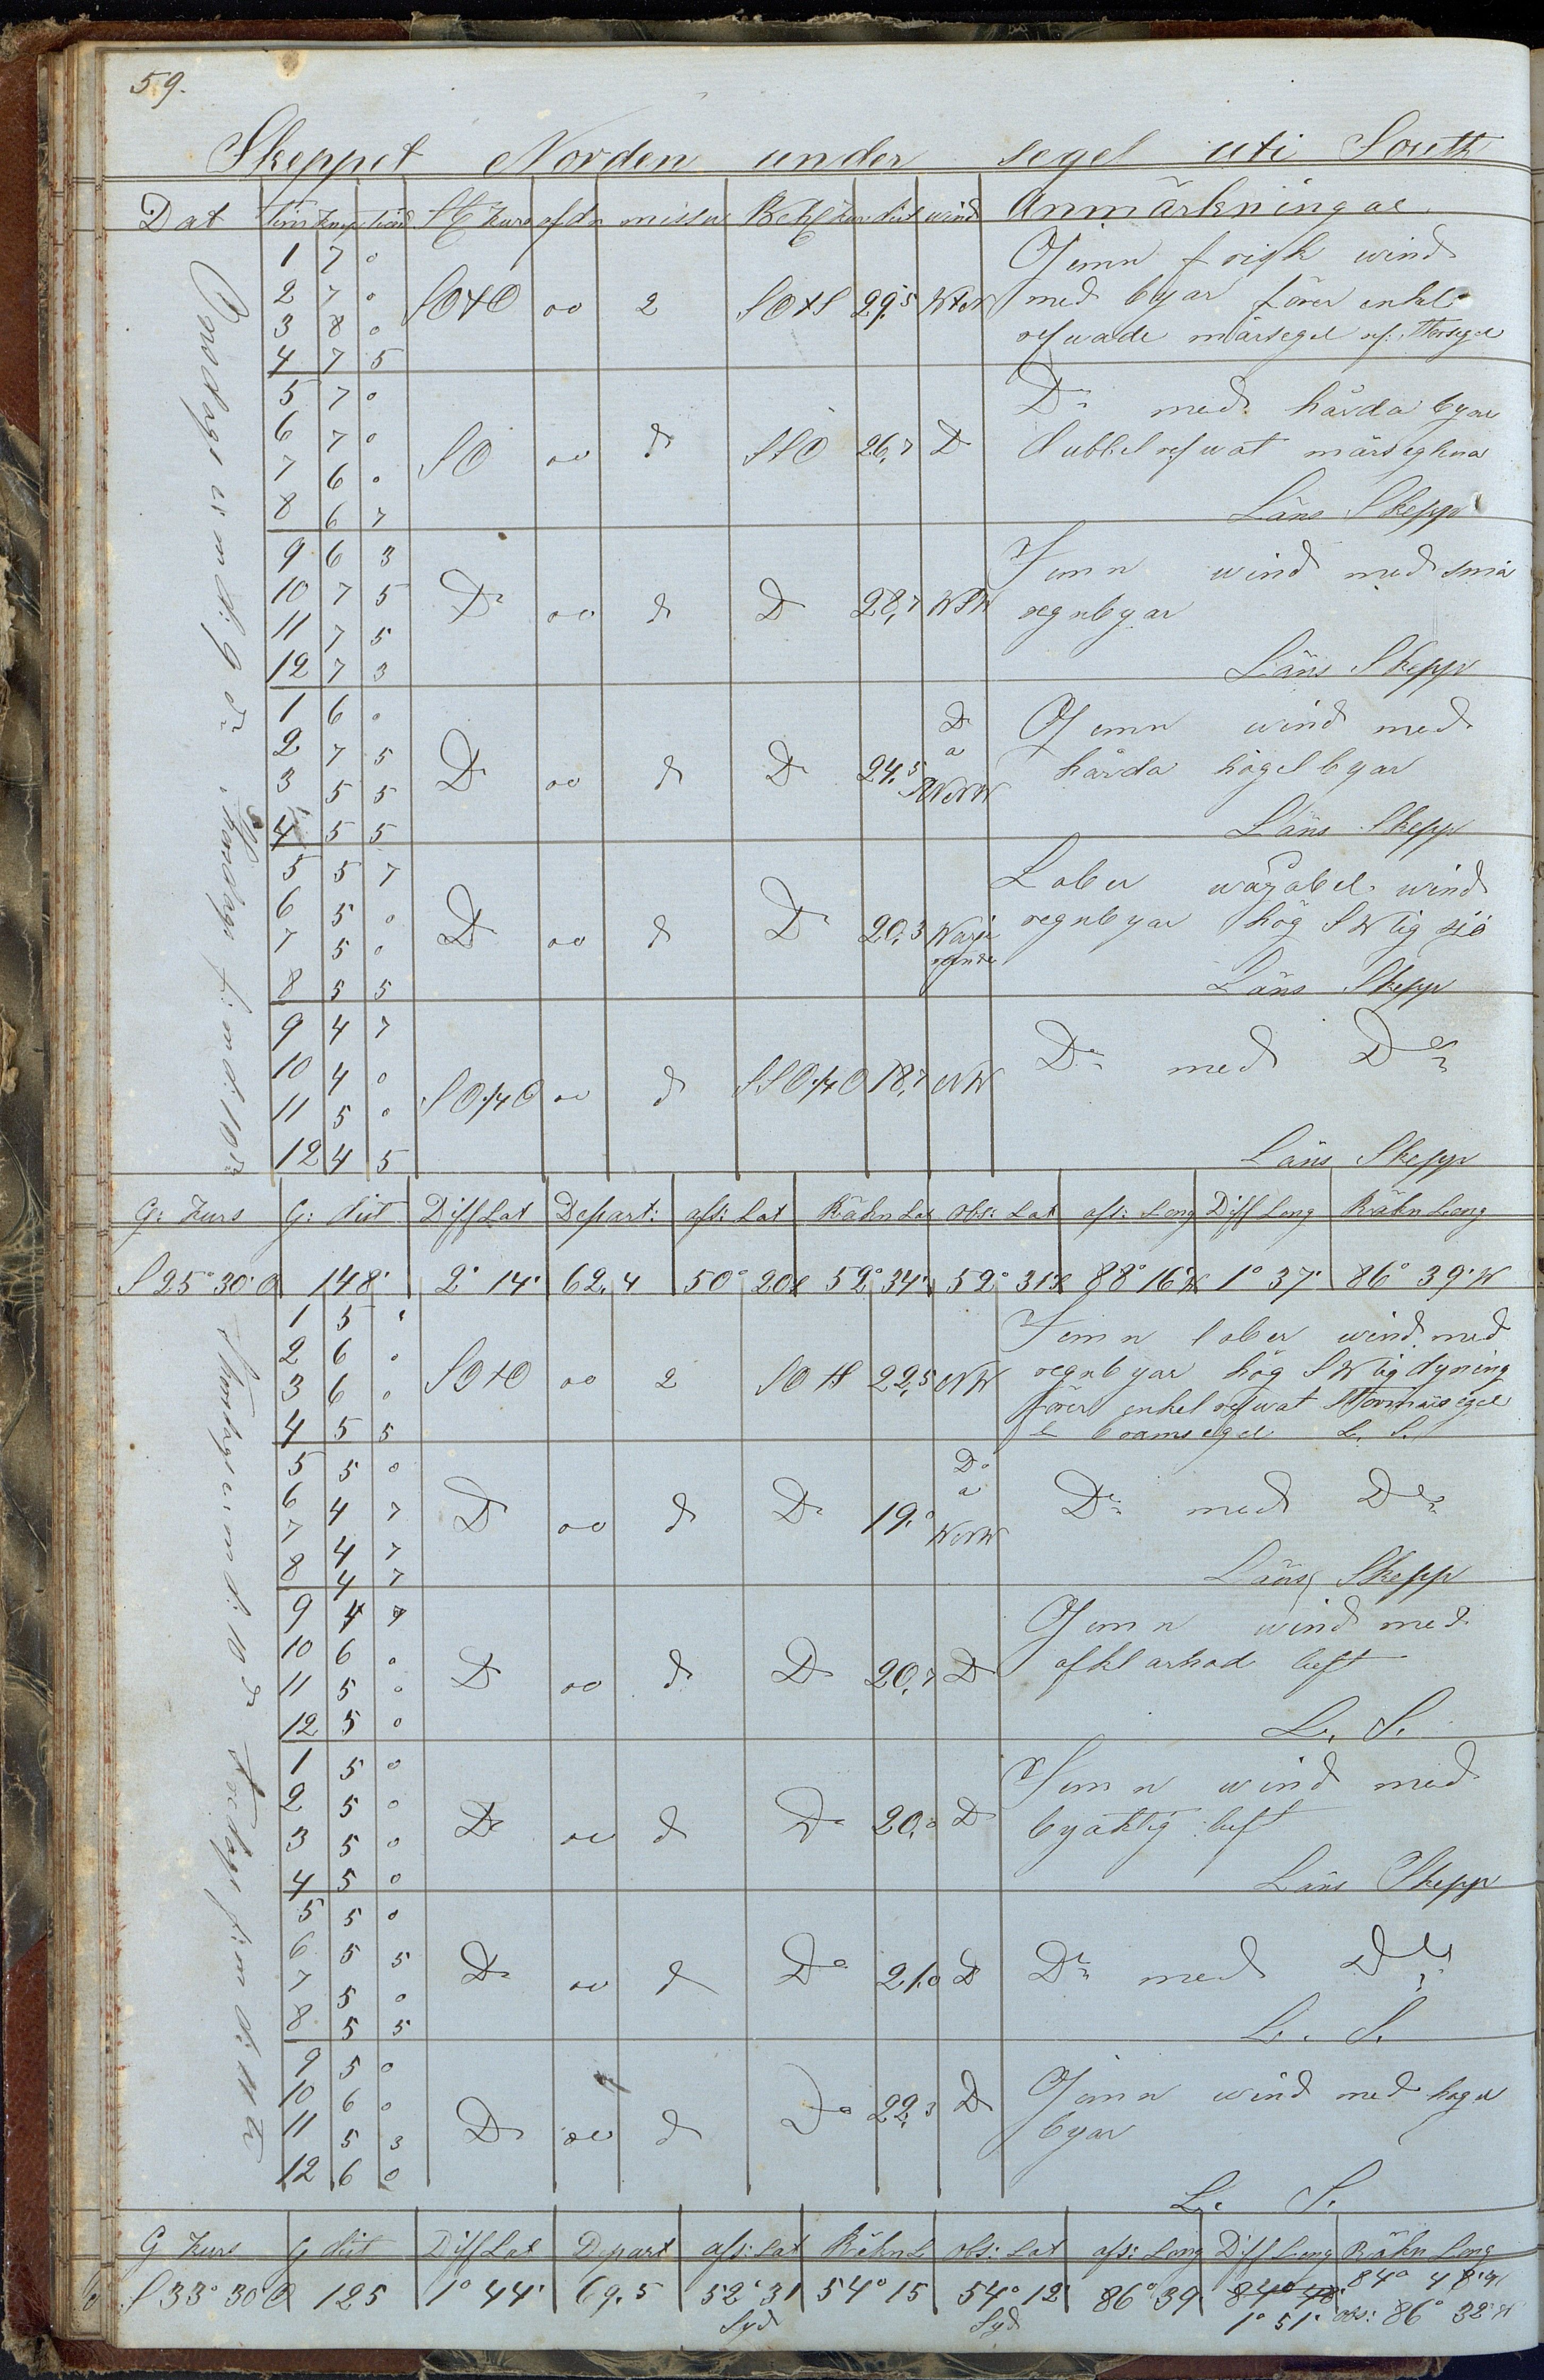 59.
Skeppet Norden under segel uti South
Dat Tim Knop Tiond St Kurs afdr missw Beh Kurs dist wind Anmärkningar
1 7 0 Jemn frisk wind
2 7 0 SOtO 00 2 SOtS 29,5 WtN med byar förer enkel
3 8 0 refwade märsegel
4 7 5
5 7 0 Do med hårda byar
6 7 0 SO 00 d SSO 26,7 D dubbel refwat märseglena
7 6 0
8 6 7 Läns Skepp
9 6 3 Jemn wind med små
10 7 5 Do 00 d D 28,7 WSW regnbyar
11 7 5
12 7 3 Läns Skepp
1 6 0 Do Jemn wind med
2 7 5 Do 00 d Do 24,5 a hårda hagelbyar
3 5 5 WNW
4 5 5 Läns Skepp
5 5 7 Laber wind
6 5 0 Do 00 d Do 20,3 regnbyar hög SWlig sjö
7 5 0
8 5 5 Läns Skepp
9 4 7 Do med Do
10 4 0 SO¼O 00 d SSO¼O 18,7 NW
11 5 0
12 4 5 Läns Skepp
Torsdagen e: m d: 9de Fredagen f: m d: 10de
G: Kurs G: dist Diff Lat Depart: aff: Lat Räkn Lat obs: Lat aff: Long Diff Long Räkn Long
S 25° 30' O 148' 2° 14' 62,4 50° 20 S 52° 34' 52° 31 S 88° 16 W 1° 37' 86° 39' W
1 5 0 Jemn laber wind med
2 6 0 SOtO 00 2 SOtS 22,5 NW regnbyar hög SWlig dyning
3 6 0 förer enkel refwat Stormärsegel
4 5 5 & bramsegel L. S.
5 5 0 Do
6 4 7 Do 00 d Do 19,0 a Do med Do
7 4 7 WNW
8 4 7 Läns Skepp
9 4 7 Jemn wind med
10 6 0 Do 00 d Do 20,7 D afklarhad luft
11 5 0
12 5 0 L. S.
1 5 0 Jemn wind med
2 5 0 Do 00 d Do 20,0 D byaktig luft
3 5 0
4 5 0 Läns Skepp
5 5 0
6 5 5 Do 00 d Do 21,0 D Do med Do
7 5 0
8 5 5 L. S.
9 5 0 Jemn wind med hagel
10 6 0 Do 00 d Do 22,3 D byar
11 5 3
12 6 0 L. S.
G Kurs G dist Diff Lat Depart aff: Lat Räkn L obs: Lat aff: Long Diff Long Räkn Long
S 33° 30' O 125 1° 44' 69,5 52° 31 54° 15 54° 12' 86° 39 84° 48' 84° 48' W
Syd Syd 1° 51' obs: 86° 32' W